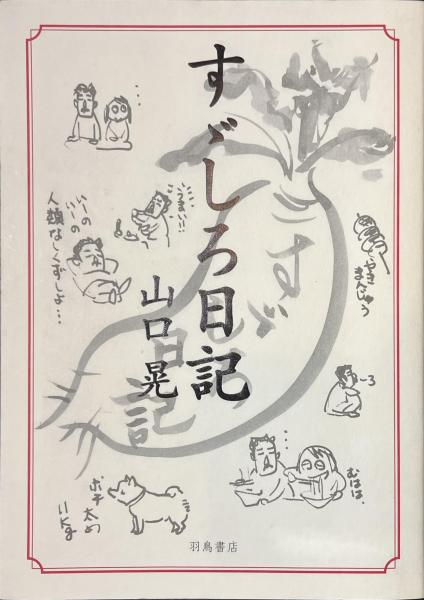 すゞしろ日記
山口晃
すゞしろ
日記
うまい!!
いーの
いーの
人類なくずしよ…
やき
まんじゅう
むはは、
ポチ
太め
11kg
羽鳥書店